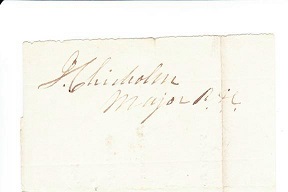 J. Chisholm
Major R.A.